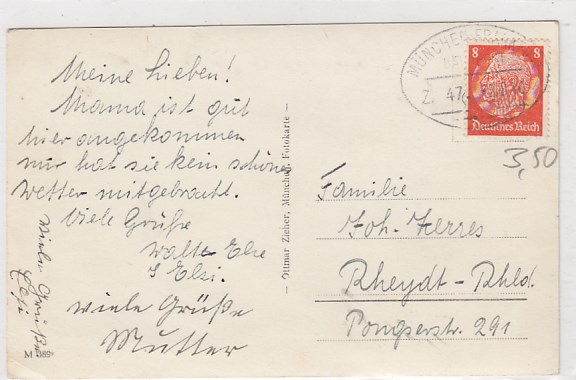 Meine Lieben!
Mama ist gut
hier angekommen
nur hat sie kein schönes
Wetter mitgebracht.
Viele Grüße
Walter Else
Elsi.
viele Grüße
Mutter
Viele Grüße
M 389
- Ottmar Zieher, München, Fotokarte -
MÜNCHEN
Z. 47
8 8
Deutsches Reich
3,50
Familie
Joh. Zerres
Rheydt-Rhld.
Pongserstr. 291